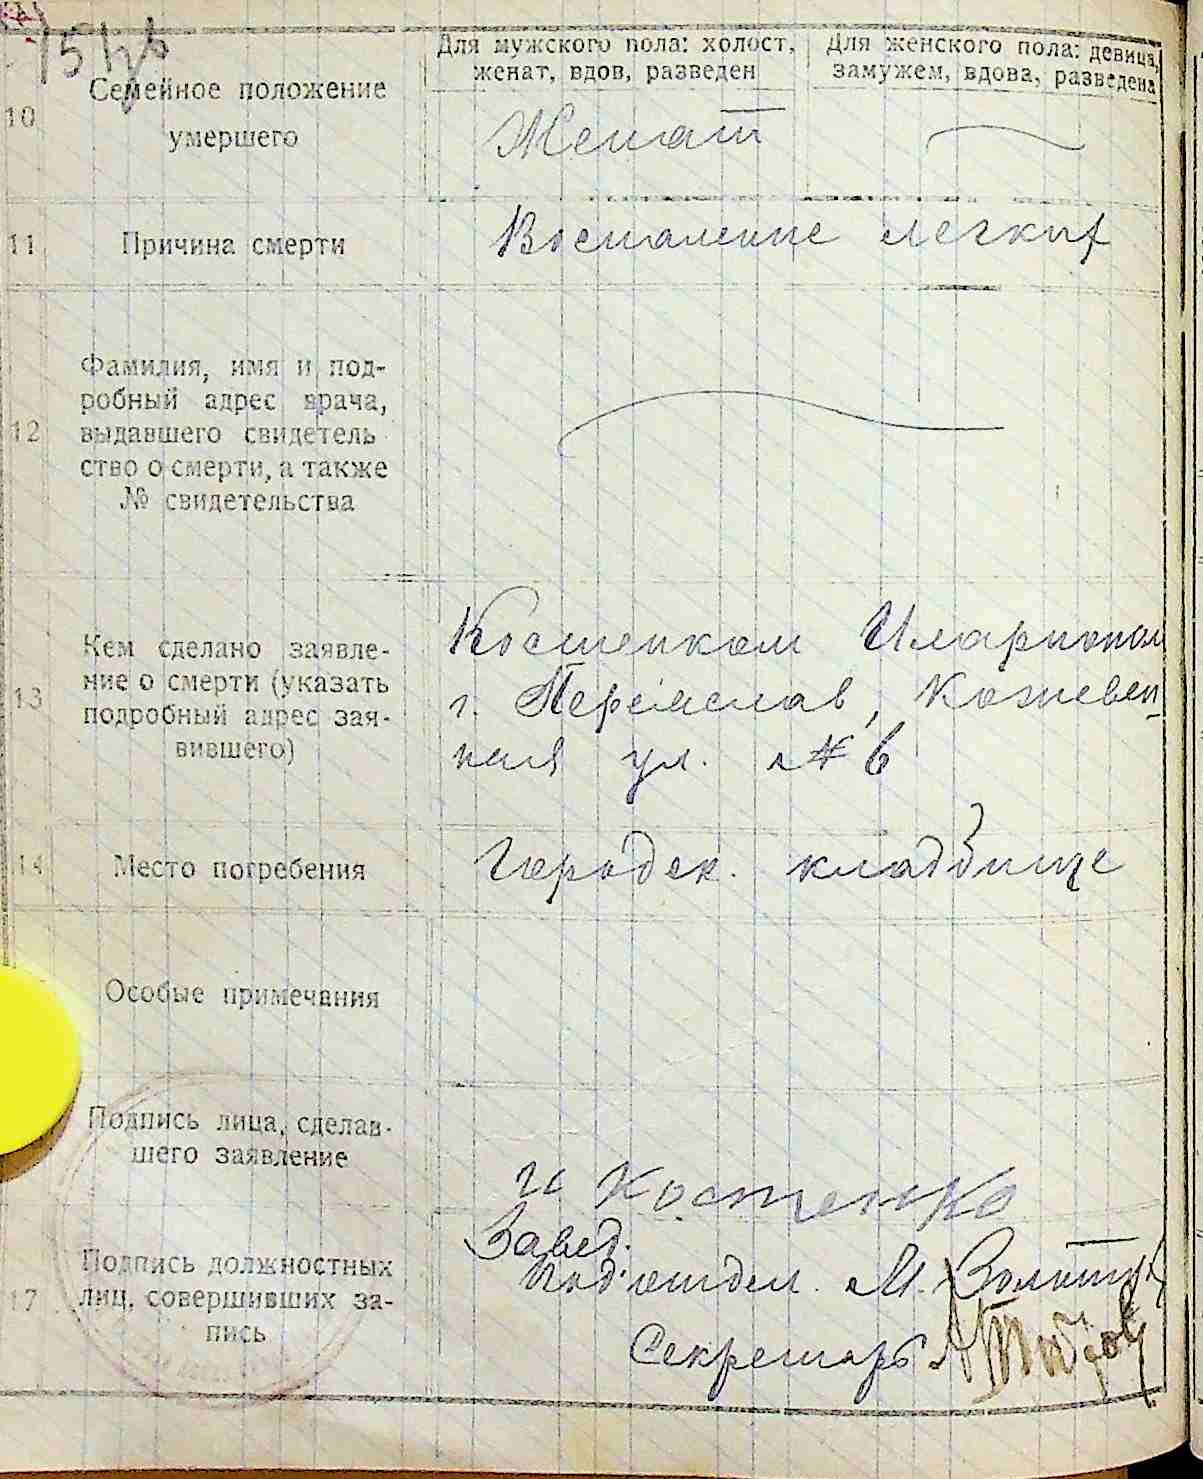 Для мужского пола: холост,
женат, вдов, разведен
Для женского пола: девица,
замужем, вдова, разведена
10
Семейное положение
умершего
Женат
11
Причина смерти
Воспаление легких
12
Фамилия, имя и под-
робный адрес врача,
выдавшего свидетель
ство о смерти, а также
№ свидетельства
13
Кем сделано заявле-
ние о смерти (указать
подробный адрес зая-
вившего)
Костенком Иларионом
г. Переяслав, Кожевен-
ная ул. № 6
14
Место погребения
Городск. кладбище
Особые примечания
Подпись лица, сделав-
шего заявление
И Костенко
17
Подпись должностных
лиц, совершивших за-
пись
Завед.
под'отдел. М.
Секретарь